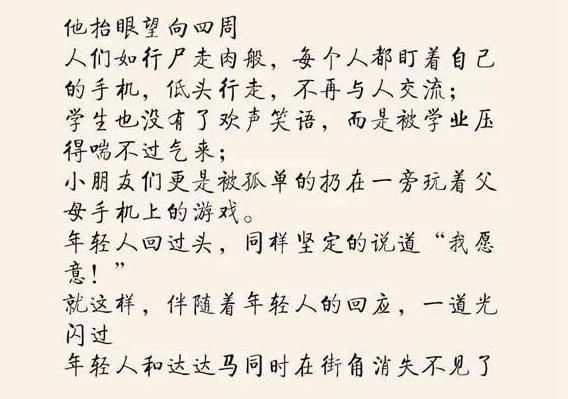 他抬眼望向四周
人们如行尸走肉般，每个人都盯着自己
的手机，低头行走，不再与人交流；
学生也没有了欢声笑语，而是被学业压
得喘不过气来；
小朋友们更是被孤单的扔在一旁玩着父
母手机上的游戏。
年轻人回过头，同样坚定的说道“我愿
意！”
就这样，伴随着年轻人的回应，一道光
闪过
年轻人和达达马同时在街角消失不见了